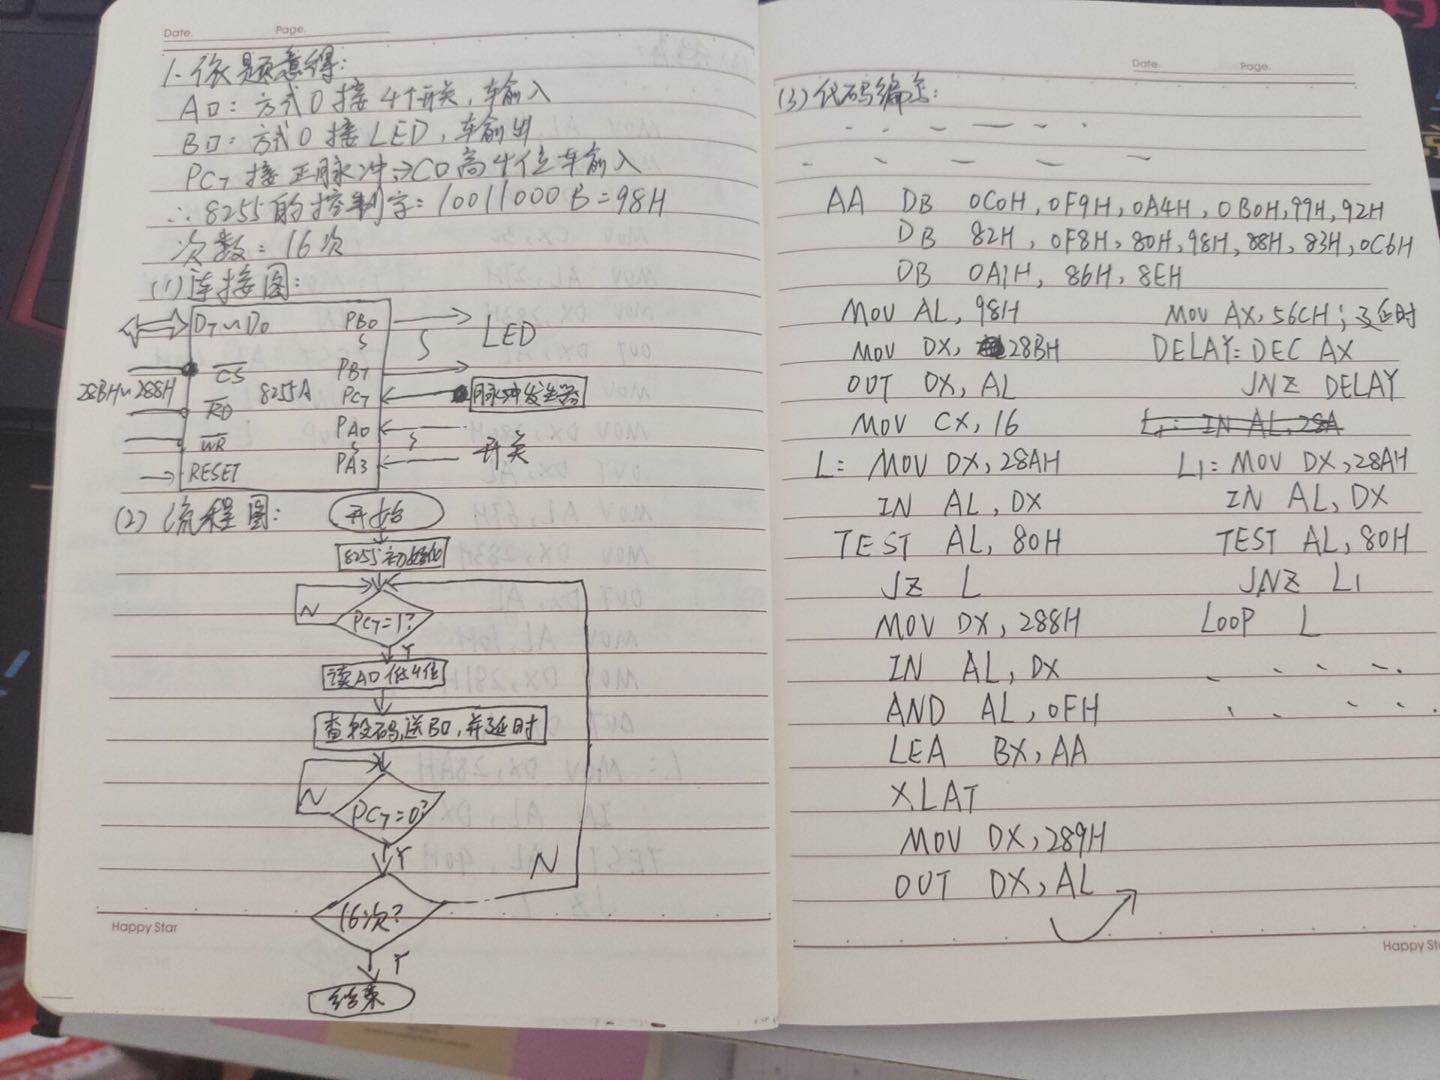 Date.
Page.
1. 依题意得:
A口: 方式0接4个开关,车输入
B口: 方式0接LED,车输出
PC7接正脉冲→C口高4位车输入
∴8255的控制字: 10011000B=98H
次数: 16次
(1)连接图:
D7~D0
PB0
LED
28BH~288H
CS
8255A
PB7
PC7
脉冲发生器
RD
PA0
WR
开关
RESET
PA3
(2) 流程图:
开始
8255初始化
N
PC7=1?
Y
读A口低4位
查段码,送B口,并延时
N
PC7=0?
Y
N
16次?
Y
结束
Happy Star
Date.
Page.
(3)代码编写:
AA DB 0C0H,0F9H,0A4H,0B0H,99H,92H
DB 82H,0F8H,80H,98H,88H,83H,0C6H
DB 0A1H,86H,8EH
MOV AL,98H
MOV DX,28BH
OUT DX,AL
MOV CX,16
L: MOV DX,28AH
IN AL,DX
TEST AL,80H
JZ L
MOV DX,288H
IN AL,DX
AND AL,0FH
LEA BX,AA
XLAT
MOV DX,289H
OUT DX,AL
MOV AX,56CH;延时
DELAY: DEC AX
JNZ DELAY
L: IN AL,28A
L1: MOV DX,28AH
IN AL,DX
TEST AL,80H
JNZ L1
LOOP L
Happy St